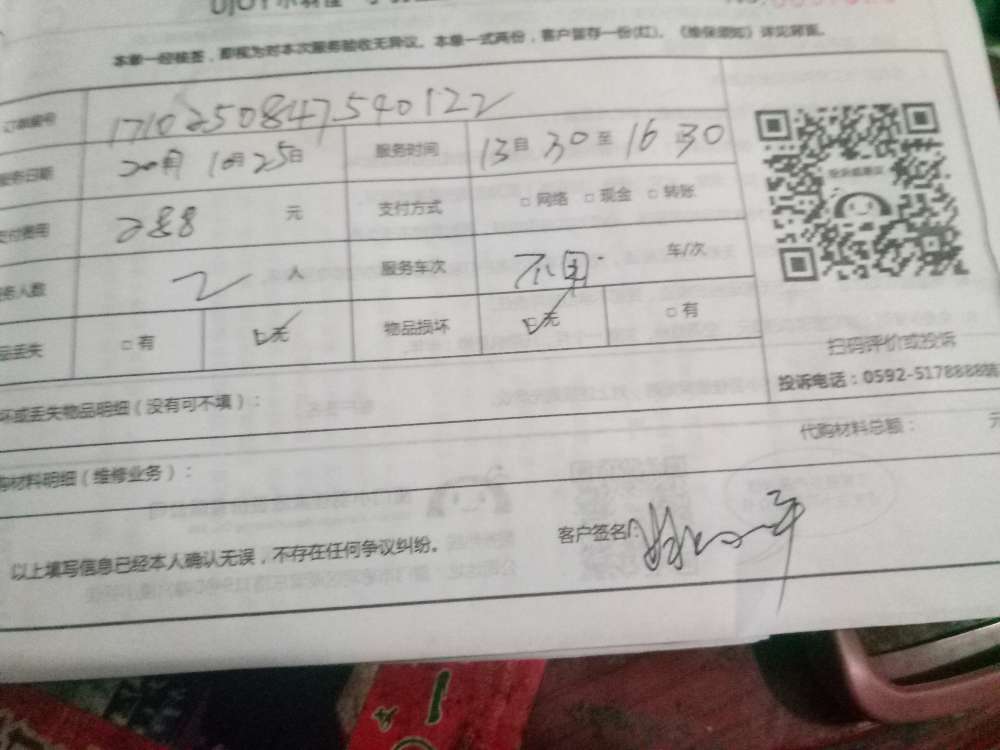 本单一经核签，即视为对本次服务验收无异议。本单一式两份，客户留存一份(红)。《维保须知》详见背面。
订单编号 1710250847540122
服务日期 10月25日 服务时间 13时30至16时30
支付费用 288元 支付方式 □网络 □现金 □转账
服务人数 2人 服务车次 不用 车/次
品丢失 □有 □无 物品损坏 □无 □有
扫码评价或投诉
投诉电话：0592-5178888转
坏或丢失物品明细（没有可不填）：
代购材料总额： 元
购材料明细（维修业务）：
以上填写信息已经本人确认无误，不存在任何争议纠纷。 客户签名：